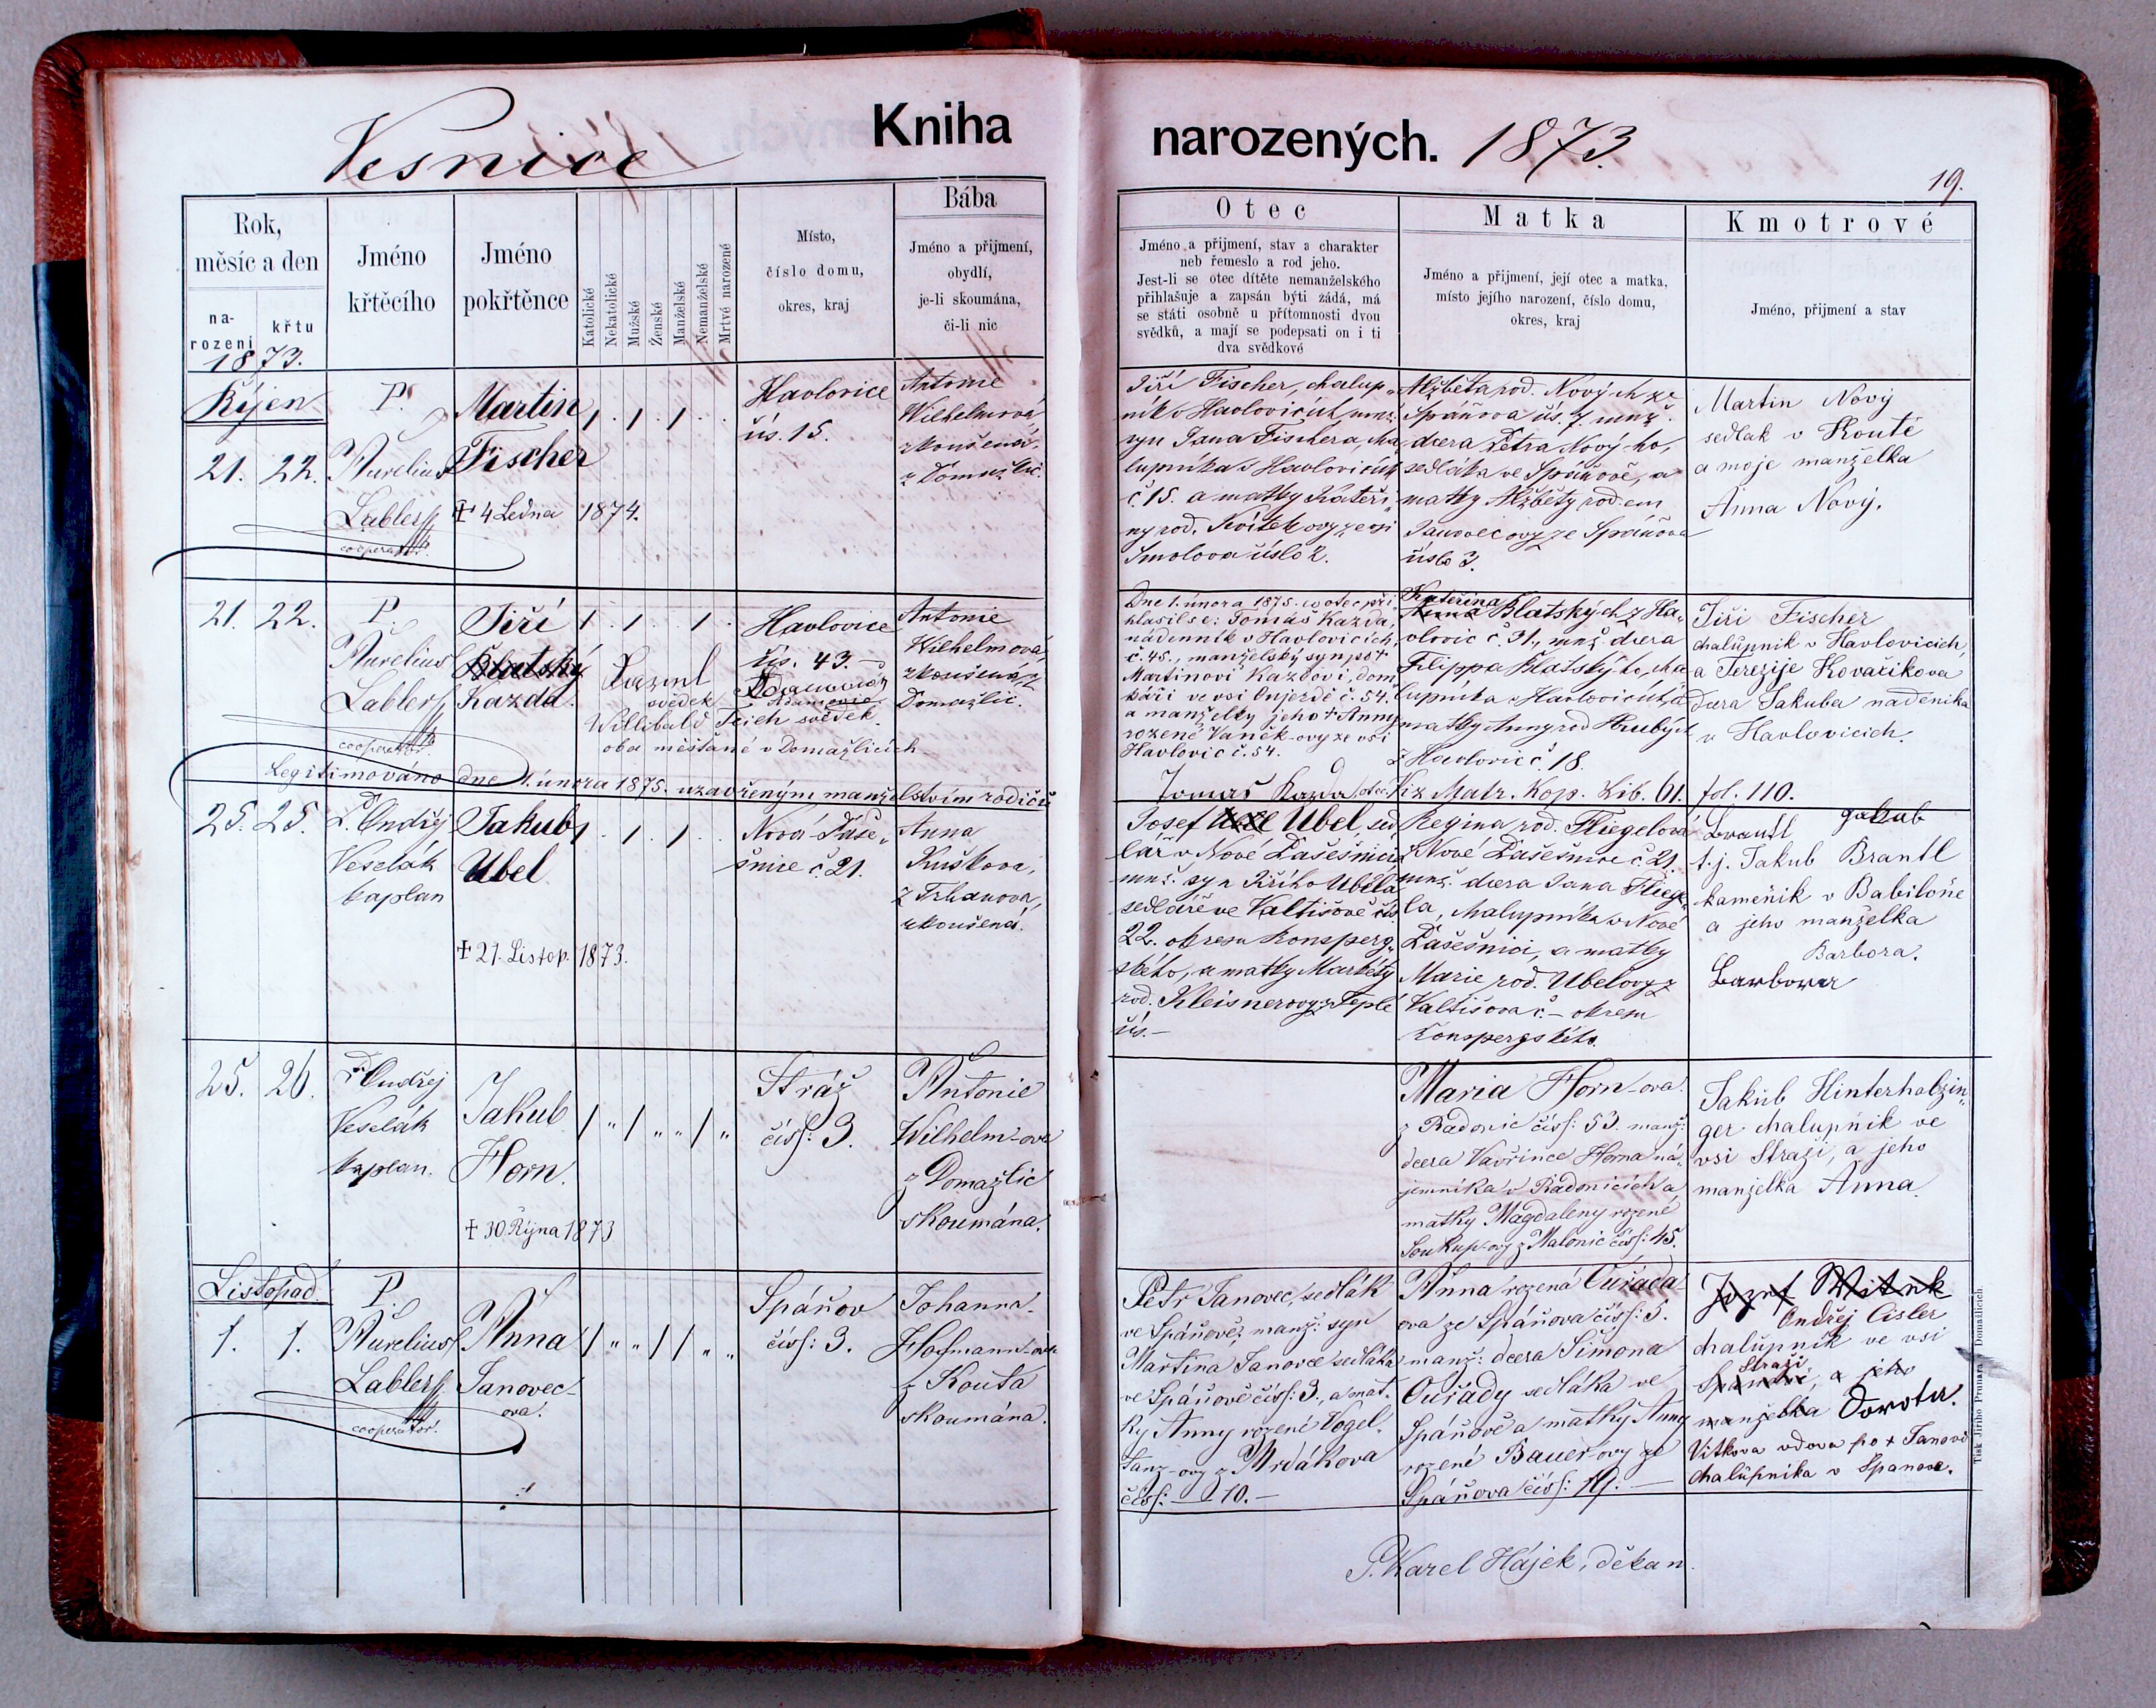 Vesnice
Kniha
narozených. 1873.
19.
Rok,
měsíc a den
na-
rození
křtu
1873.
Jméno
křtěcího
Jméno
pokřtěnce
Katolické
Nekatolické
Mužské
Ženské
Manželské
Nemanželské
Mrtvé narozené
Místo,
číslo domu,
okres, kraj
Bába
Jméno a přijmení,
obydlí,
je-li skoumána,
či-li nic
Otec
Jméno a přijmení, stav a charakter
neb řemeslo a rod jeho.
Jest-li se otec dítěte nemanželského
přihlašuje a zapsán býti žádá, má
se státi osobně u přítomnosti dvou
svědků, a mají se podepsati on i ti
dva svědkové
Matka
Jméno a přijmení, její otec a matka,
místo jejího narození, číslo domu,
okres, kraj
Kmotrové
Jméno, přijmení a stav
Říjen
21. 22.
P.
Aurelius
Labler
cooperator.
Martin
Fischer
† 4 Ledna 1874.
Havlovice
čís. 15.
Antonie
Wilhelmová
zkoušená
z Domažlic.
Jiří Fischer, chalup-
ník v Havlovicích, mnž.
syn Jana Fischera, cha
lupníka v Havlovicích
č. 15. a matky Kateři-
ny rod. Královy ze vsi
Smolova číslo 2.
Alžběta rod. Nových ze
Spáňova čís. 7. mnž.
dcera Petra Nový-ho,
sedláka ve Spáňově, a
matky Alžběty rod.em
Janovecovy ze Spáňova
číslo 3.
Martin Nový
sedlak v Koutě
a moje manželka
Anna Nový.
21. 22.
P.
Aurelius
Labler
cooperator.
Jiří
Klatský
Kazda.
svědek
Willibald Teich svědek.
oba měšťané v Domažlicích
Havlovice
čís. 43.
Antonie
Wilhelmová,
zkoušená z
Domažlic.
Dne 1. února 1875. co otec při-
hlásil se: Tomáš Kazda,
nádenník v Havlovicích,
č. 45., manželský syn po †
Martinovi Kazdovi, dom
káři ve vsi Oujezdě č. 54.
a manželky jeho † Anny
rozené Vaněk-ovy ze vsi
Havlovic č. 54.
Tomáš Kazda otec.
Kateřina
Anna Klatských z Ha-
vlovic č. 31., mnž. dcera
Filippa Klatský-ho, cha
lupníka v Havlovicích, a
matky Anny rod. Hrubých
z Havlovic č. 18.
Viz Matr. Kop. Lib. 61. fol. 110.
Jiří Fischer
chalůpnik v Havlovicich,
a Terezije Kovačikova
dcera Jakuba nadeníka
v Havlovicich.
Legitimováno dne 1. února 1875. uzavřeným manželstvím rodičů
25. 25.
P. Ondřej
Veselák
kaplan
Jakub
Ubel
† 21. Listop. 1873.
Nová Paše-
šnice č. 21.
Anna
Kuškova,
z Trhanova,
zkoušená.
Josef Ubel, sed
lář v Nové Pašešnici
mnž. syn Jiřího Ubela
sedláře ve Valtišově čís
22. okresu Ronsperg-
ského, a matky Markéty
rod. Kleisnerovy z Teplé
čís. -
Regina rod. Fliegelová
z Nové Pašešnice č. 21.
mnž. dcera Jana Fliege-
la, chalupníka v Nové
Pašešnici, a matky
Marie rod. Ubelovy z
Valtišova č. - okresu
Ronspergského.
Brantl Jakub
t.j. Jakub Brantl
kameník v Babiloně
a jeho manželka
Barbora.
Barbora
25. 26.
P. Ondřej
Veselák
kaplan.
Jakub
Horn.
† 30. Října 1873
Stráž
čísl: 3.
Antonie
Wilhelm-ova
z Domažlic
skoumána.
Maria Horn-ova.
z Radonic čísl: 53. manž:
dcera Vavřince Horna ná-
jemníka v Radonicích a
matky Magdaleny rozené
Soukup-ovy z Malonic čísl: 45.
Jakub Hinterholzin-
ger chalupník ve
vsi Straži, a jeho
manželka Anna.
Listopad.
1. 1.
P.
Aurelius
Labler
cooperator.
Anna
Janovec-
ova.
Spáňov
čísl: 3.
Johanna
Hofmann-ova
z Kouta
skoumána.
Petr Janovec, sedlák
ve Spáňově, manž: syn
Martina Janovce sedláka
ve Spáňově čísl: 3., a mat-
ky Anny rozené Vogel-
tanz-ovy z Mrdákova
čísl: - 10. -
Anna rozená Ouřada-
ova ze Spáňova čísl: 5.
manž: dcera Šimona
Ouřady sedláka ve
Spáňově a matky Anny
rozené Bauer-ovy ze
Spáňova čísl: 19. -
Jozef Witek
Ondřej Cisler
chalůpnik ve vsi
Straži,
Spáňově, a jeho
manželka Dorota.
Vitkova vdova po † Janovi
chalůpníka v Spanove.
P. Karel Hájek, děkan.
Tisk Jiřího Prunara v Domažlicích.